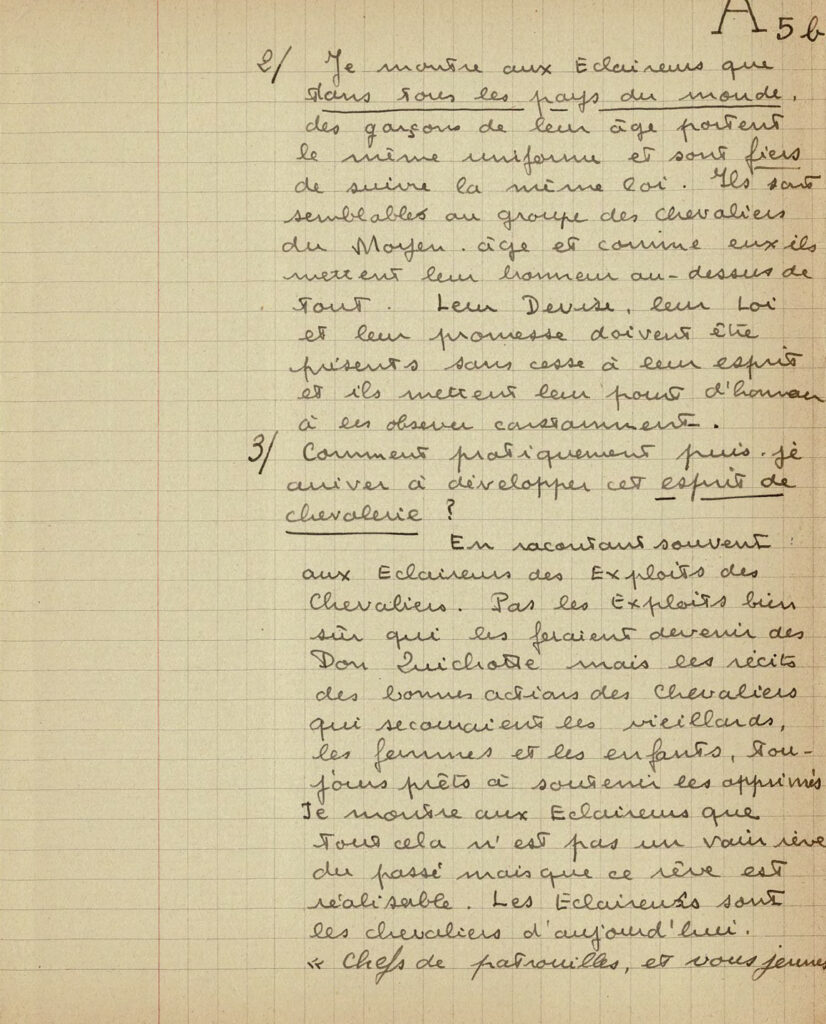 A 5 b
2/ Je montre aux Eclaireurs que
dans tous les pays du monde,
des garçons de leur âge portent
le même uniforme et sont fiers
de suivre la même loi. Ils sont
semblables au groupe des chevaliers
du Moyen-âge et comme eux ils
mettent leur honneur au-dessus de
tout. Leur Devise, leur Loi
et leur promesse doivent être
présents sans cesse à leur esprit
et ils mettent leur point d'honneur
à les observer constamment.
3/ Comment pratiquement puis-je
arriver à développer cet esprit de
chevalerie ?
En racontant souvent
aux Eclaireurs des Exploits des
Chevaliers. Pas les Exploits bien
sûr qui les feraient devenir des
Don Quichotte mais les récits
des bonnes actions des Chevaliers
qui secouraient les vieillards,
les femmes et les enfants, tou-
jours prêts à soutenir les opprimés
Je montre aux Eclaireurs que
tout cela n'est pas un vain rêve
du passé mais que ce rêve est
réalisable. Les Eclaireurs sont
les chevaliers d'aujourd'hui.
« Chefs de patrouilles, et vous jeunes